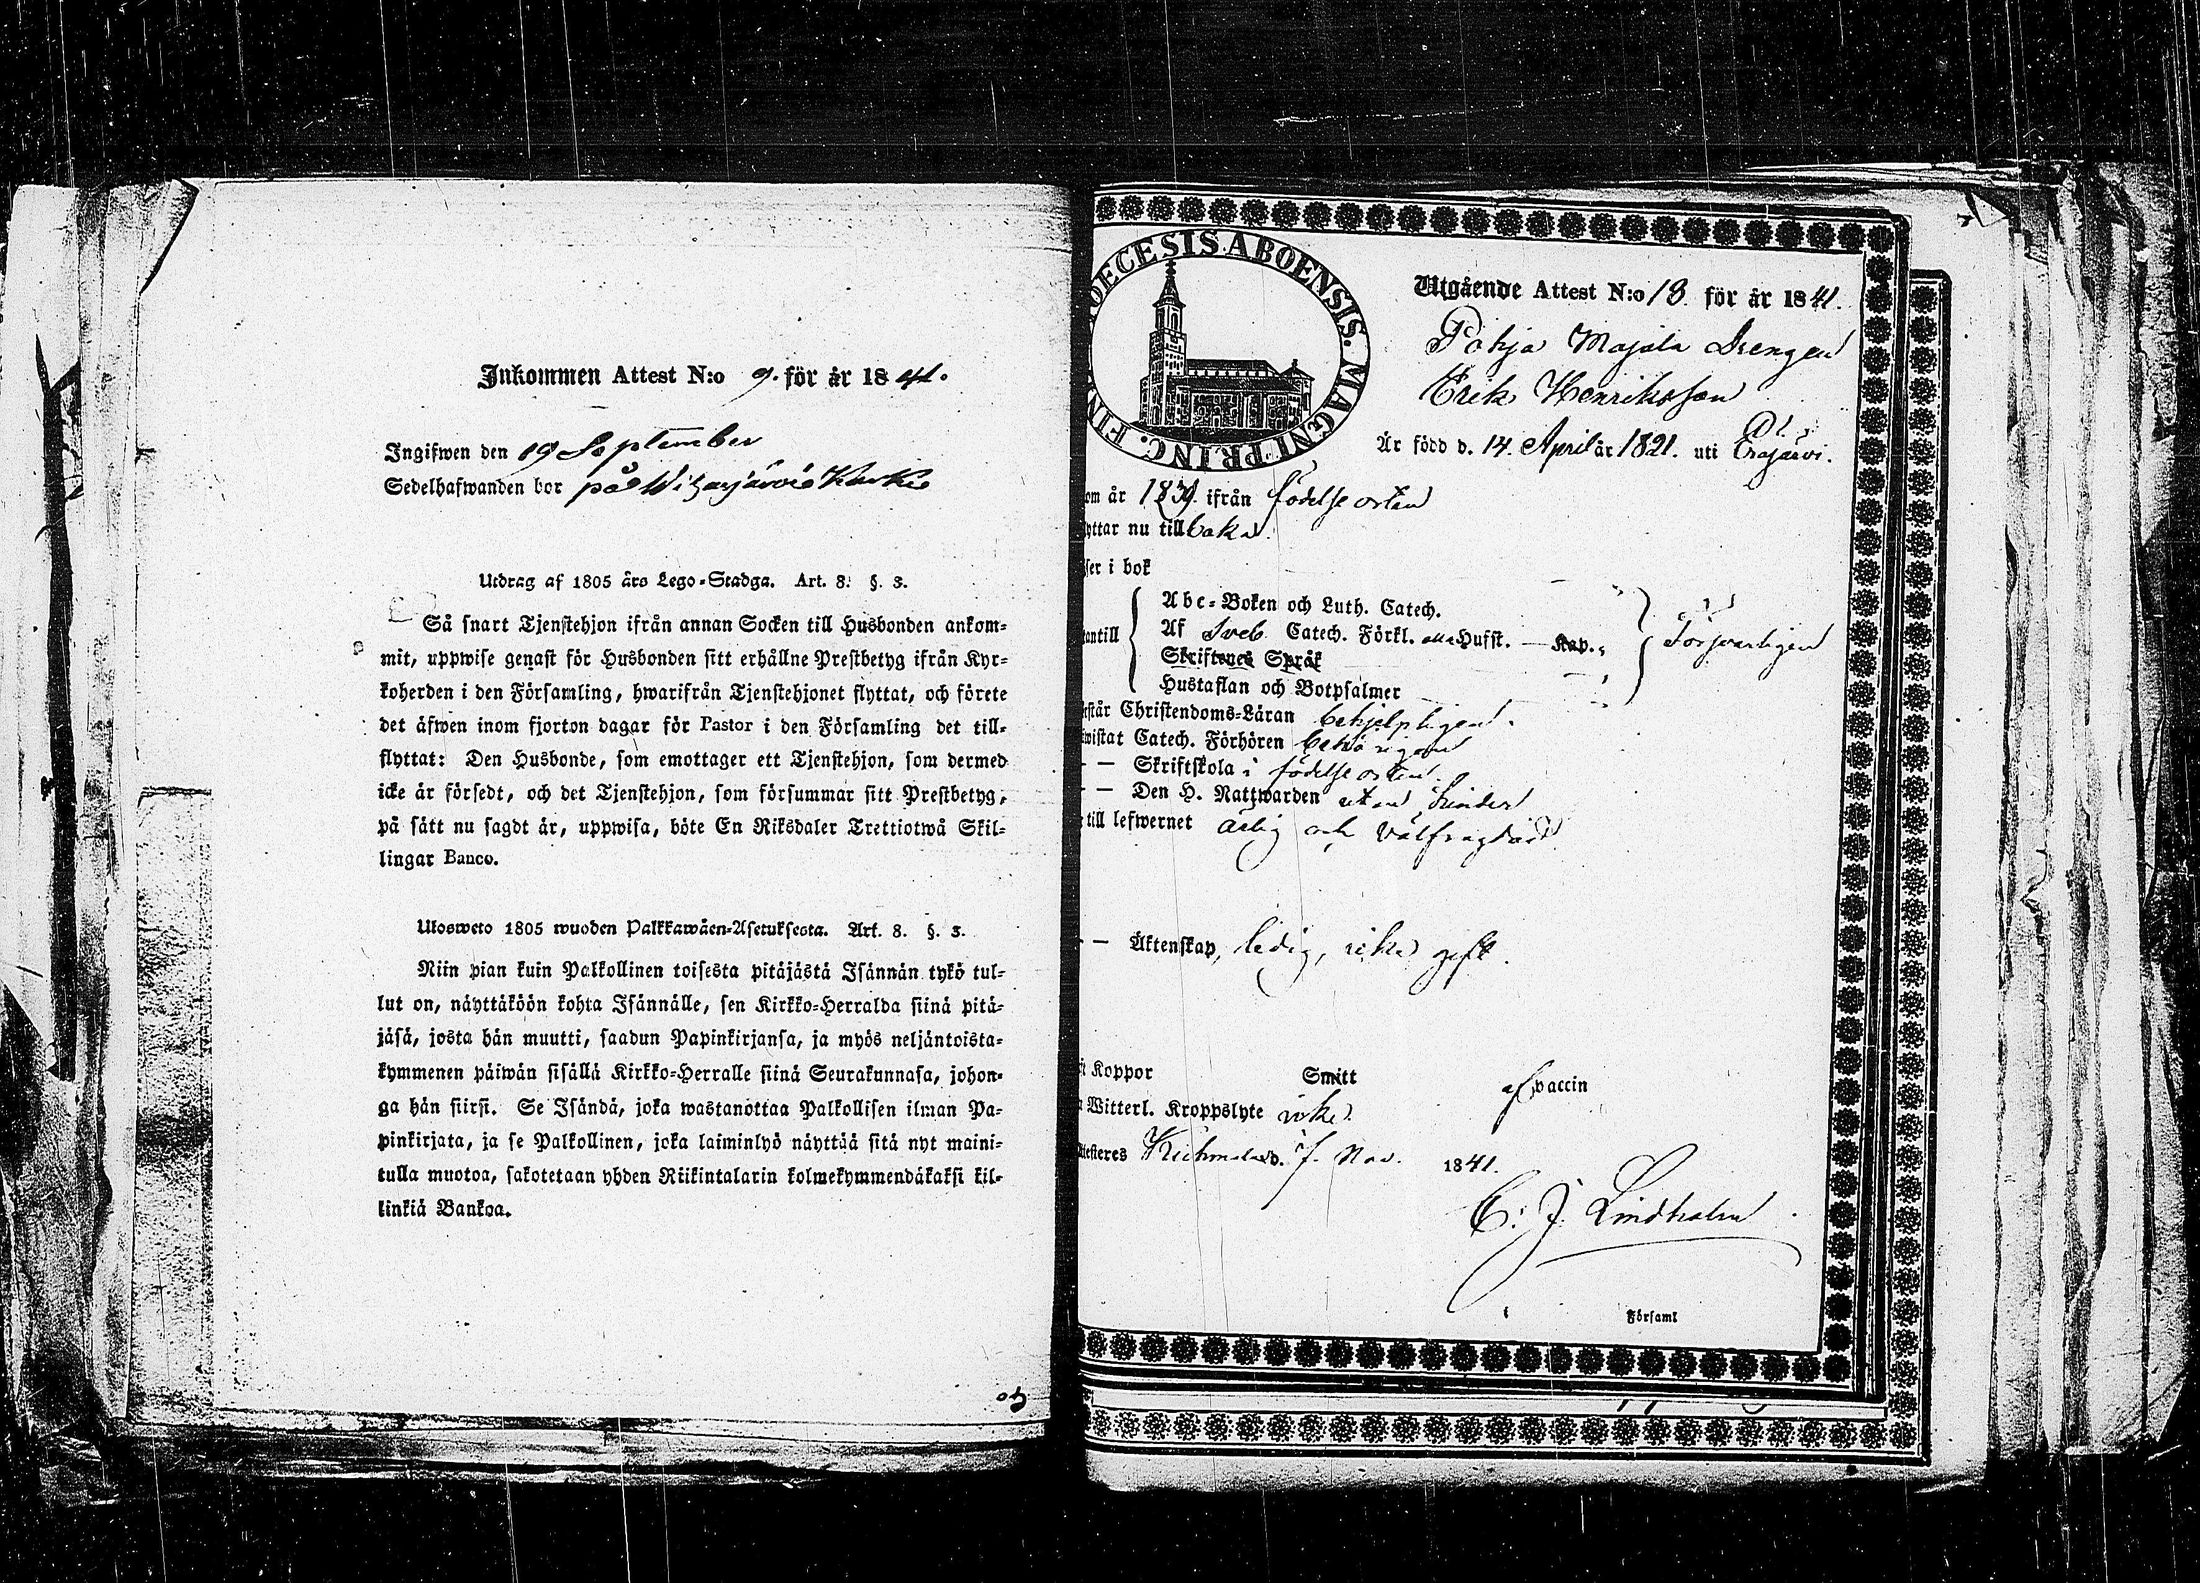 Inkommen Attest N:o 9. för år 1841.
Ingifwen den 19 September
Sedelhafwanden bor på
Utdrag af 1805 års Lego-Stadga. Art. 8. §. 3.
Så snart Tjenstehjon ifrån annan Socken till Husbonden ankom-
mit, uppwise genast för Husbonden sitt erhållne Prestbetyg ifrån Kyr-
koherden i den Församling, hwarifrån Tjenstehjonet flyttat, och förete
det äfwen inom fjorton dagar för Pastor i den Församling det till-
flyttat: Den Husbonde, som emottager ett Tjenstehjon, som dermed
icke är försedt, och det Tjenstehjon, som försummar sitt Prestbetyg,
på sätt nu sagdt är, uppwisa, böte En Riksdaler Trettiotwå Skil-
lingar Banco.
Ulosweto 1805 wuoden Palkkawäen-Asetuksesta. Art. 8. §. 3.
Niin pian kuin Palkollinen toisesta pitäjästä Isännän tykö tul-
lut on, näyttäköön kohta Isännälle, sen Kirkko-Herralda siinä pitä-
jäsä, josta hän muutti, saadun Papinkirjansa, ja myös neljäntoista-
kymmenen päiwän sisällä Kirkko-Herralle siinä Seurakunnasa, johon-
ga hän siirsi. Se Isändä, joka wastanottaa Palkollisen ilman Pa-
pinkirjata, ja se Palkollinen, joka laiminlyö näyttää sitä nyt maini-
tulla muotoa, sakotetaan yhden Riikintalarin kolmekymmendäkaksi kil-
linkiä Bankoa.
DECESIS ABOENSIS. MAGNI PRINC. FIN
Utgående Attest N:o 18. för år 1841.
Pohja Majala Drengen
Erik Henriksson
Är född d. 14. April år 1821. uti Erajärvi.
om år 1839. ifrån födelse orten
yttar nu till baka.
ser i bok
Abc-Boken och Luth. Catech.
antill Af Sveb. Catech. Förkl. Hufst. Kap.
Skriftenes Språk
Hustaflan och Botpsalmer
Försvarligen
rstår Christendoms-Läran behjelpligen.
wistat Catech. Förhören behörigen
— — Skriftskola i födelse orten.
— — Den H. Nattwarden utan hinder
till lefwernet ärlig och välfrägdad
— — Äktenskap, ledig, icke gift.
Koppor Smitt af vaccin
Witterl. Kroppslyte icke.
Attesteres d. 7. Nov. 1841.
C. J. Lindholm
Församl